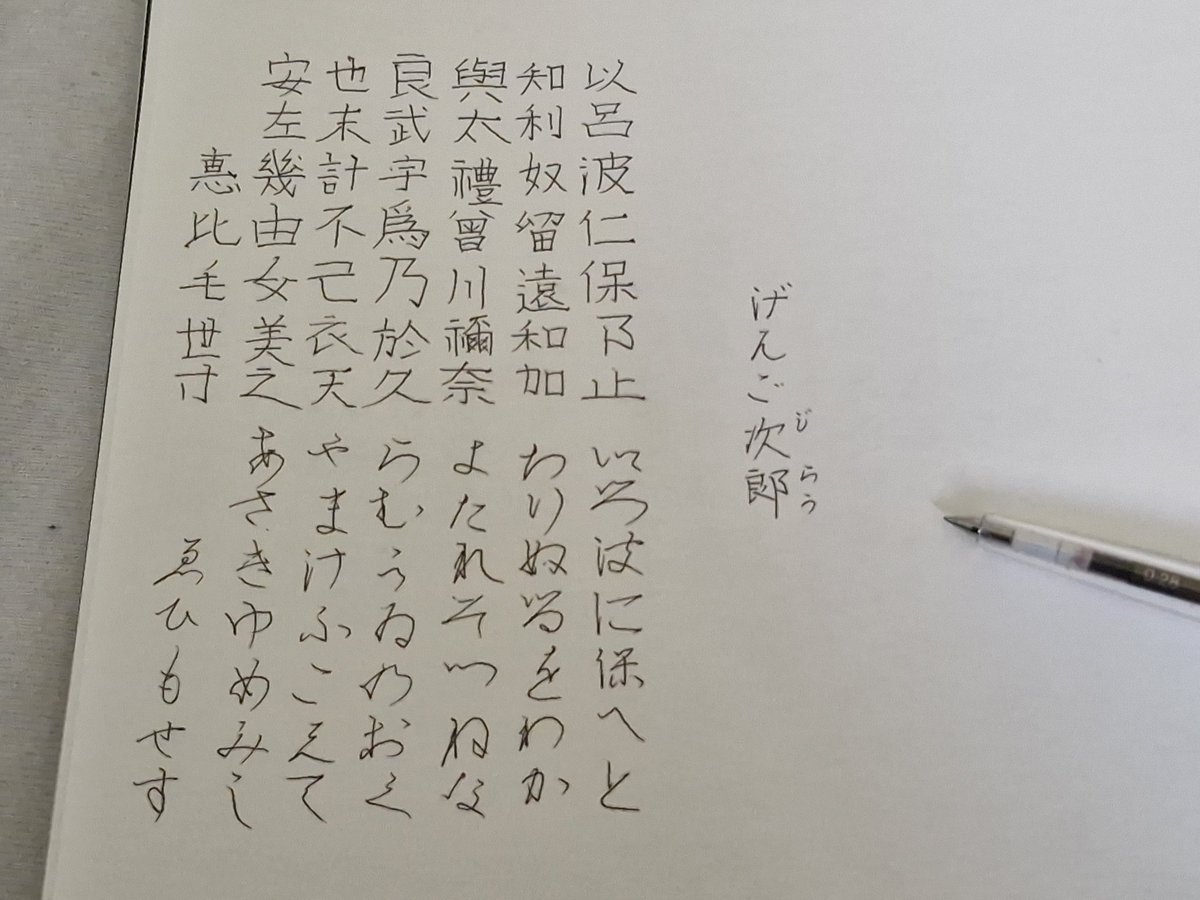 げんご次郎
じらう
以呂波仁保止
知利奴留遠和加
與太禮曾川禰奈
良武宇爲乃於久
也末計不己衣天
安左幾由女美之
惠比毛世寸
いろ波に保へと
ちりぬるをわか
よたれそつねな
らむうゐのおく
やまけふこえて
あさきゆめみし
ゑひもせす